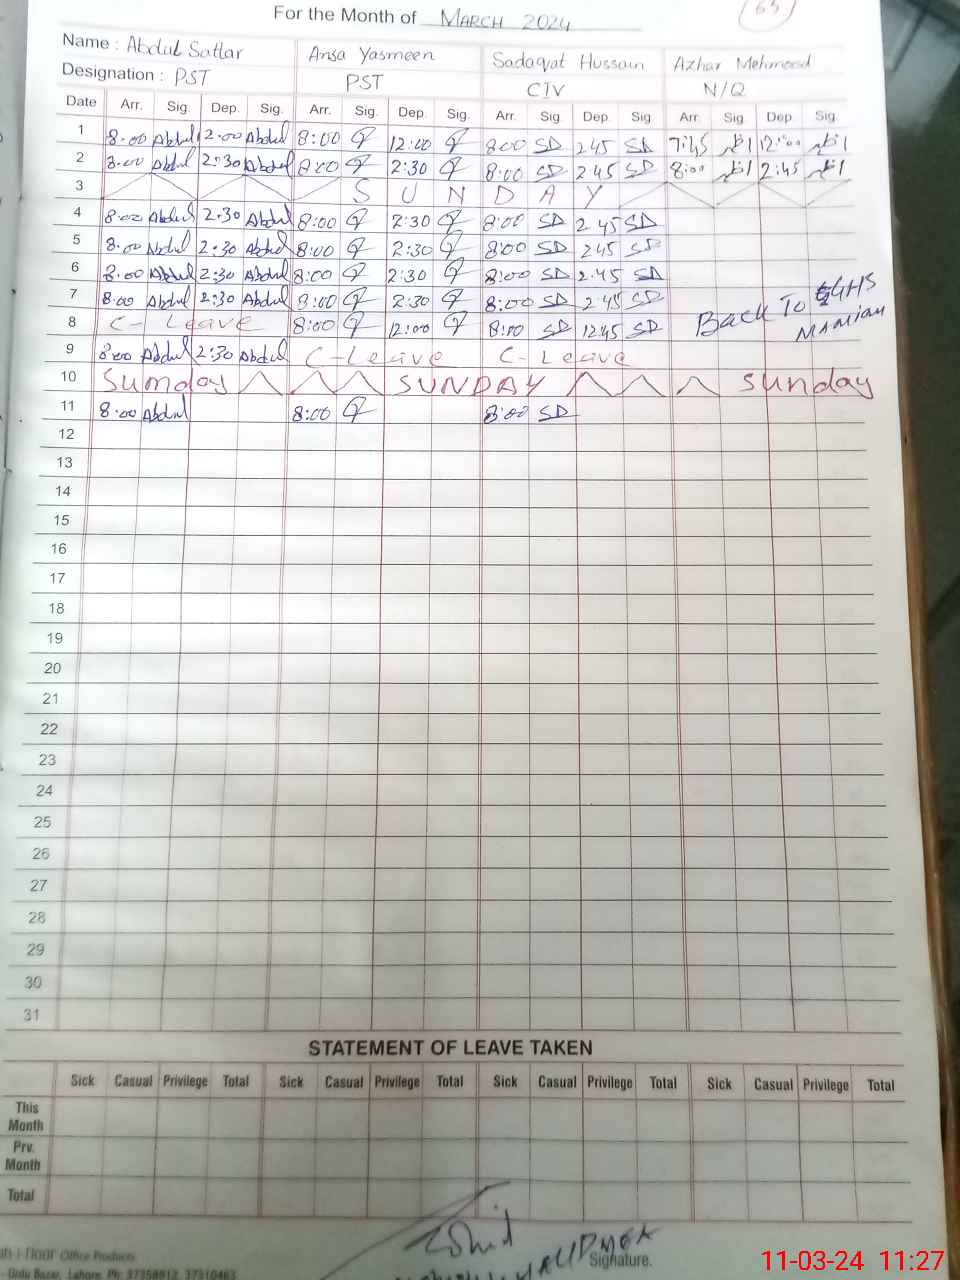 65
For the Month of MARCH 2024
Name : Abdul Sattar Ansa Yasmeen Sadaqat Hussain Azhar Mehmood
Designation : PST PST CIV N/Q
Date Arr. Sig. Dep. Sig. Arr. Sig. Dep. Sig. Arr. Sig. Dep. Sig. Arr. Sig Dep. Sig.
1 8.00 Abdul 12.00 Abdul 8:00 12:00 8:00 SD 2 45 SD 7:45 اظہر 12:00 اظہر
2 8.00 Abdul 2:30 Abdul 8:00 2:30 8:00 SD 2 45 SD 8:00 اظہر 2:45 اظہر
3 SUNDAY
4 8:00 Abdul 2:30 Abdul 8:00 2:30 8:00 SD 2 45 SD
5 8.00 Abdul 2:30 Abdul 8:00 2:30 8:00 SD 2 45 SD
6 8.00 Abdul 2:30 Abdul 8:00 2:30 8:00 SD 2:45 SD
7 8:00 Abdul 2:30 Abdul 8:00 2:30 8:00 SD 2:45 SD
8 C- Leave 8:00 12:00 8:00 SD 12:45 SD Back To GHS
MAMIAM
9 8:00 Abdul 2:30 Abdul C-Leave C- Leave
10 Sumday SUNDAY sunday
11 8:00 Abdul 8:00 8:00 SD
12
13
14
15
16
17
18
19
20
21
22
23
24
25
26
27
28
29
30
31
STATEMENT OF LEAVE TAKEN
Sick Casual Privilege Total Sick Casual Privilege Total Sick Casual Privilege Total Sick Casual Privilege Total
This
Month
Prv.
Month
Total
Office Products
Signature.
Urdu Bazar, Lahore. Ph: 37358912, 37310463
11-03-24 11:27